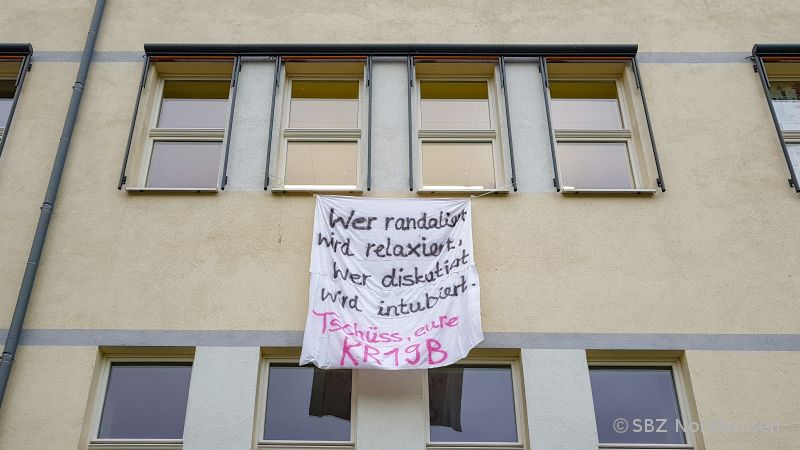 Wer randaliert
wird relaxiert,
Wer diskutiert
wird intubiert.
Tschüss, eure
KR19B
© SBZ Nordhausen